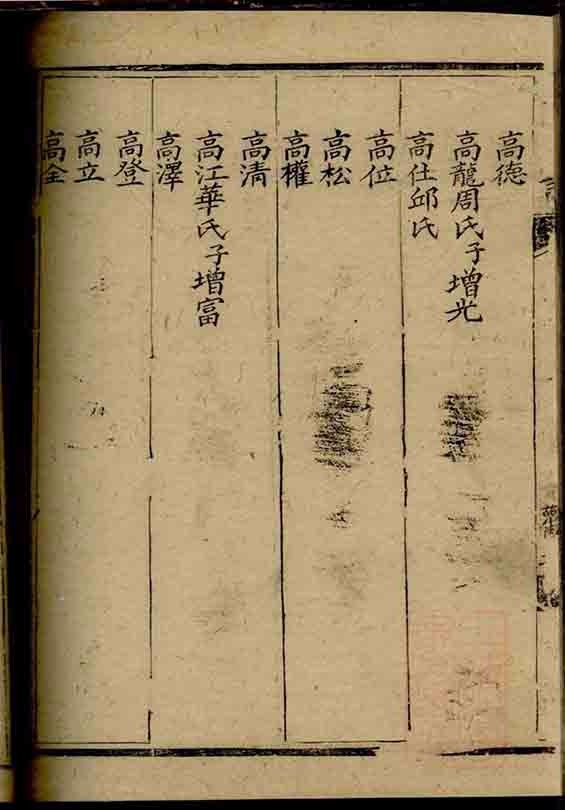 高德
高龍周氏子增光
高仕邱氏
高位
高松
高權
高清
高江華氏子增富
高澤
高登
高立
高全